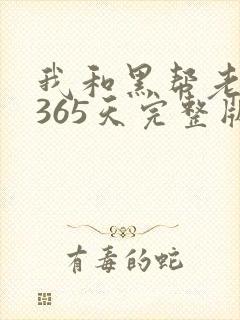 我和黑帮老
365天完整版
有毒的蛇